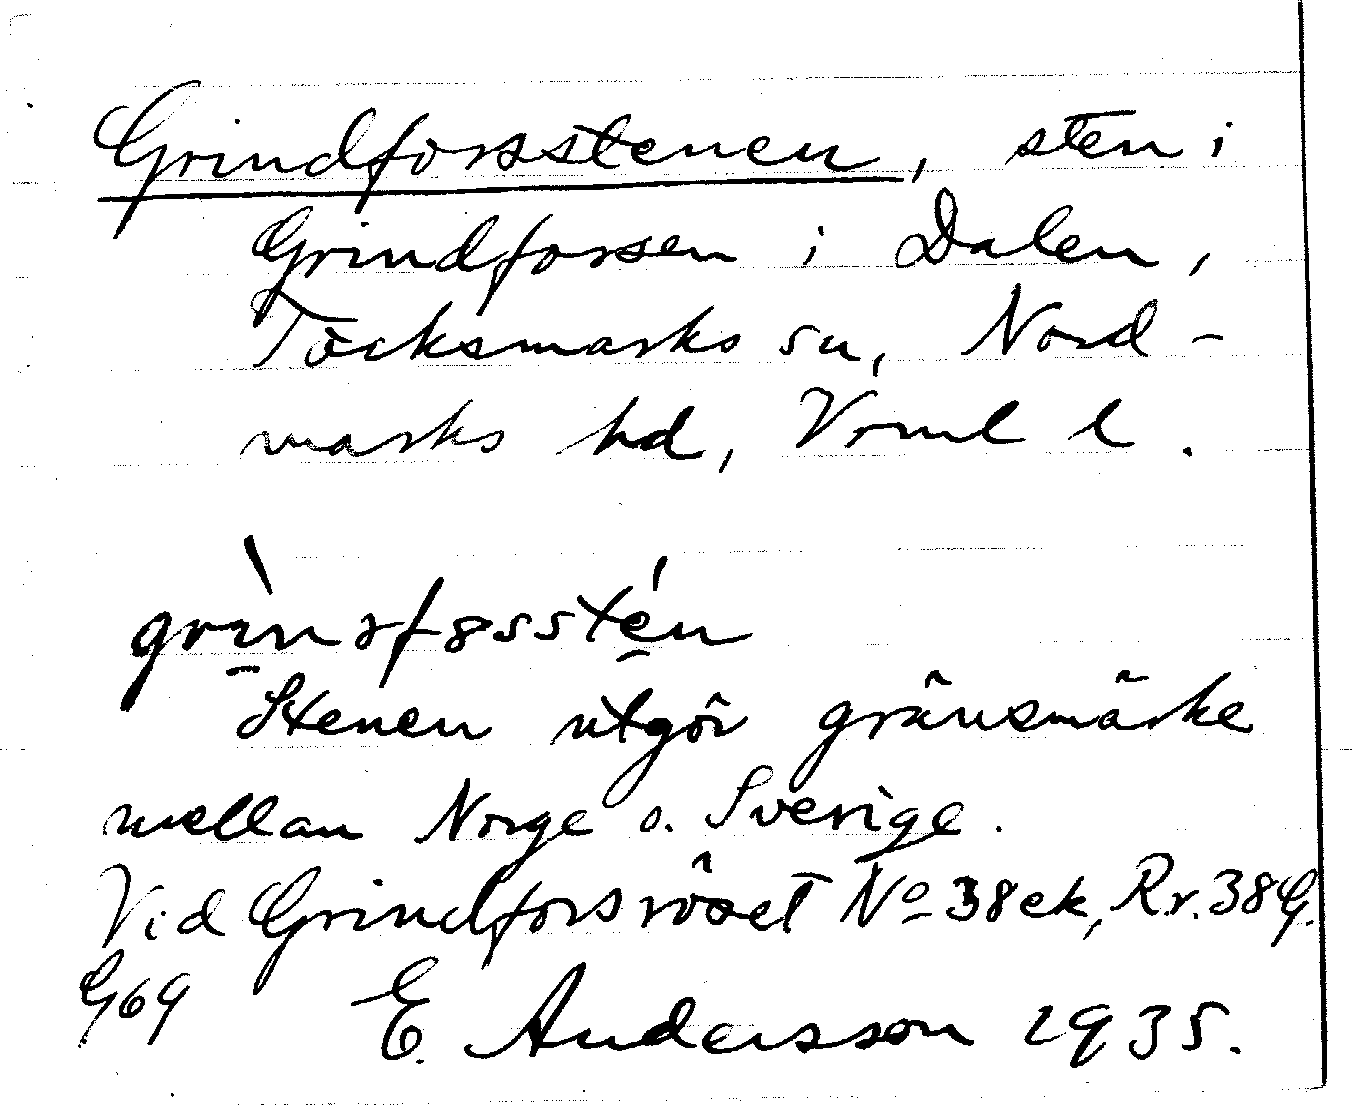 Grindforsstenen, sten i
Grindforsen i Dalen,
Töcksmarks sn, Nord-
marks hd, Vrml l.
grìnsfɵssstén
Stenen utgör gränsmärke
mellan Norge o. Sverige.
Vid Grindforsröset Nº 38 ek, Rr. 38 G.
G69 E. Andersson 1935.